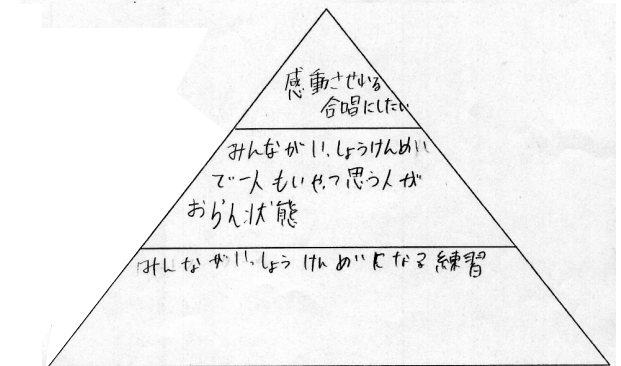 感動させれる
合唱にしたい
みんながいっしょうけんめい
で一人もいやって思う人が
おらん状態
みんながいっしょうけんめいになる練習